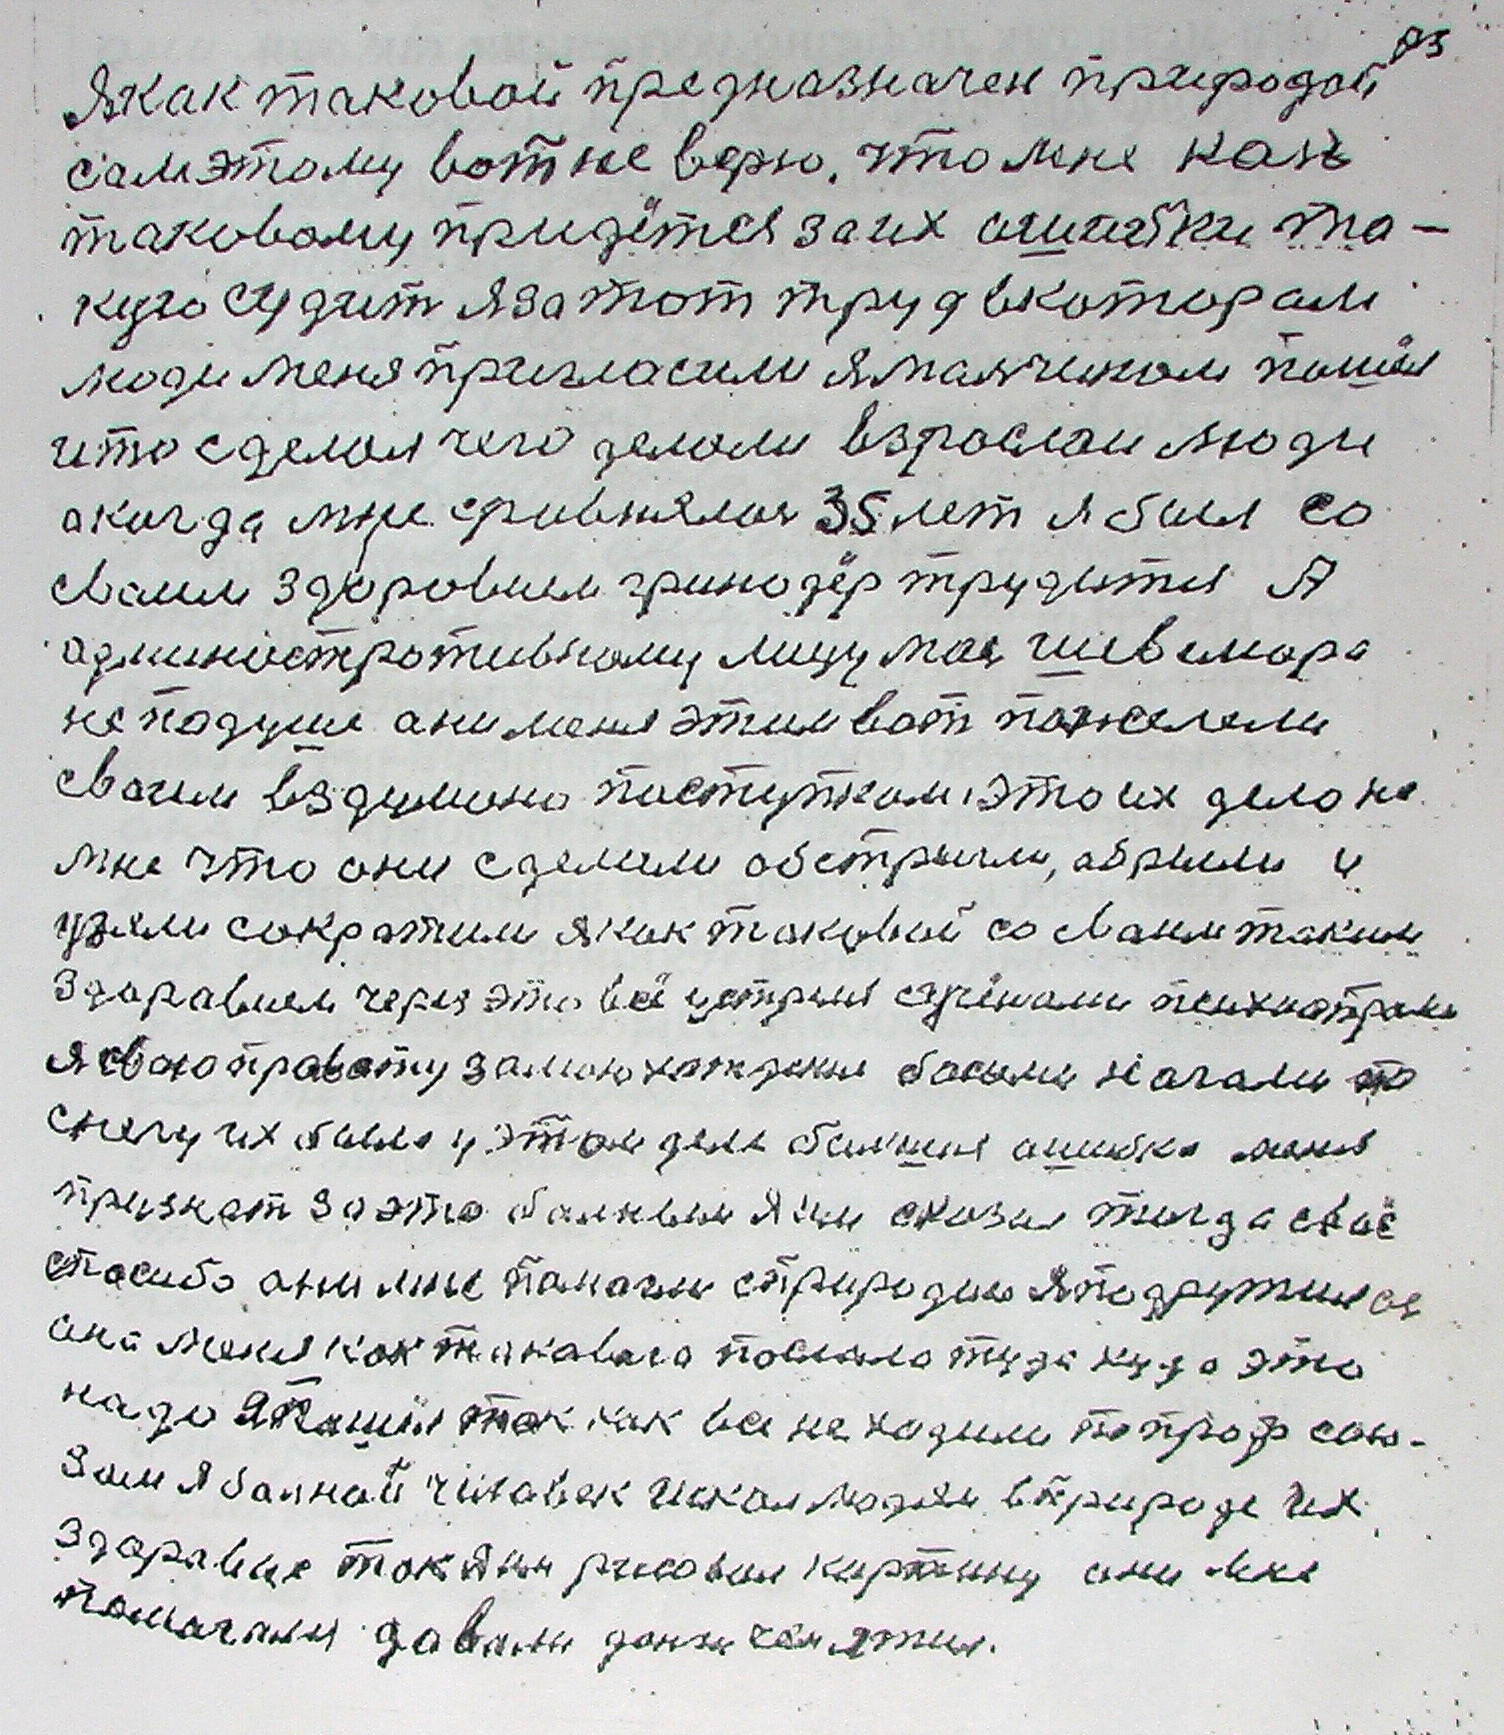 83
Я как таковой предназначен природой
сам этому вот не верю, что мне как
таковому придётся за их ошибки та-
кую судит я за тот труд вкотором
люди меня пригласили я малчиком пошёл
ито сделал чего делали взрослаи люди
а когда мне сровнялоя 35 лет я был со
сваим здоровием гринодёр трудится А
административному лицу моя шевемора
не подуше они меня этим вот пожелели
сваим вздумано поступком, это их дело не
мне что они сделали обстригли, абрили и
узяли сократили я как таковой со сваим таким
здаравием через это всё устрем сучёнами психиатрами
я сваю правату замаю хождения босыми ногами по
снегу их была у этом деле балшая ашибка меня
признат за это балным я им сказал тогда своё
спасибо они мне памагли с природаю я подружился
она меня как таковаго послала туда куда это
надо я пашёл так как все не хадили по проф сою-
зам я балной чилавек искал людям в природе их
здаравие так я им рисовал картину они мне
памагали давали